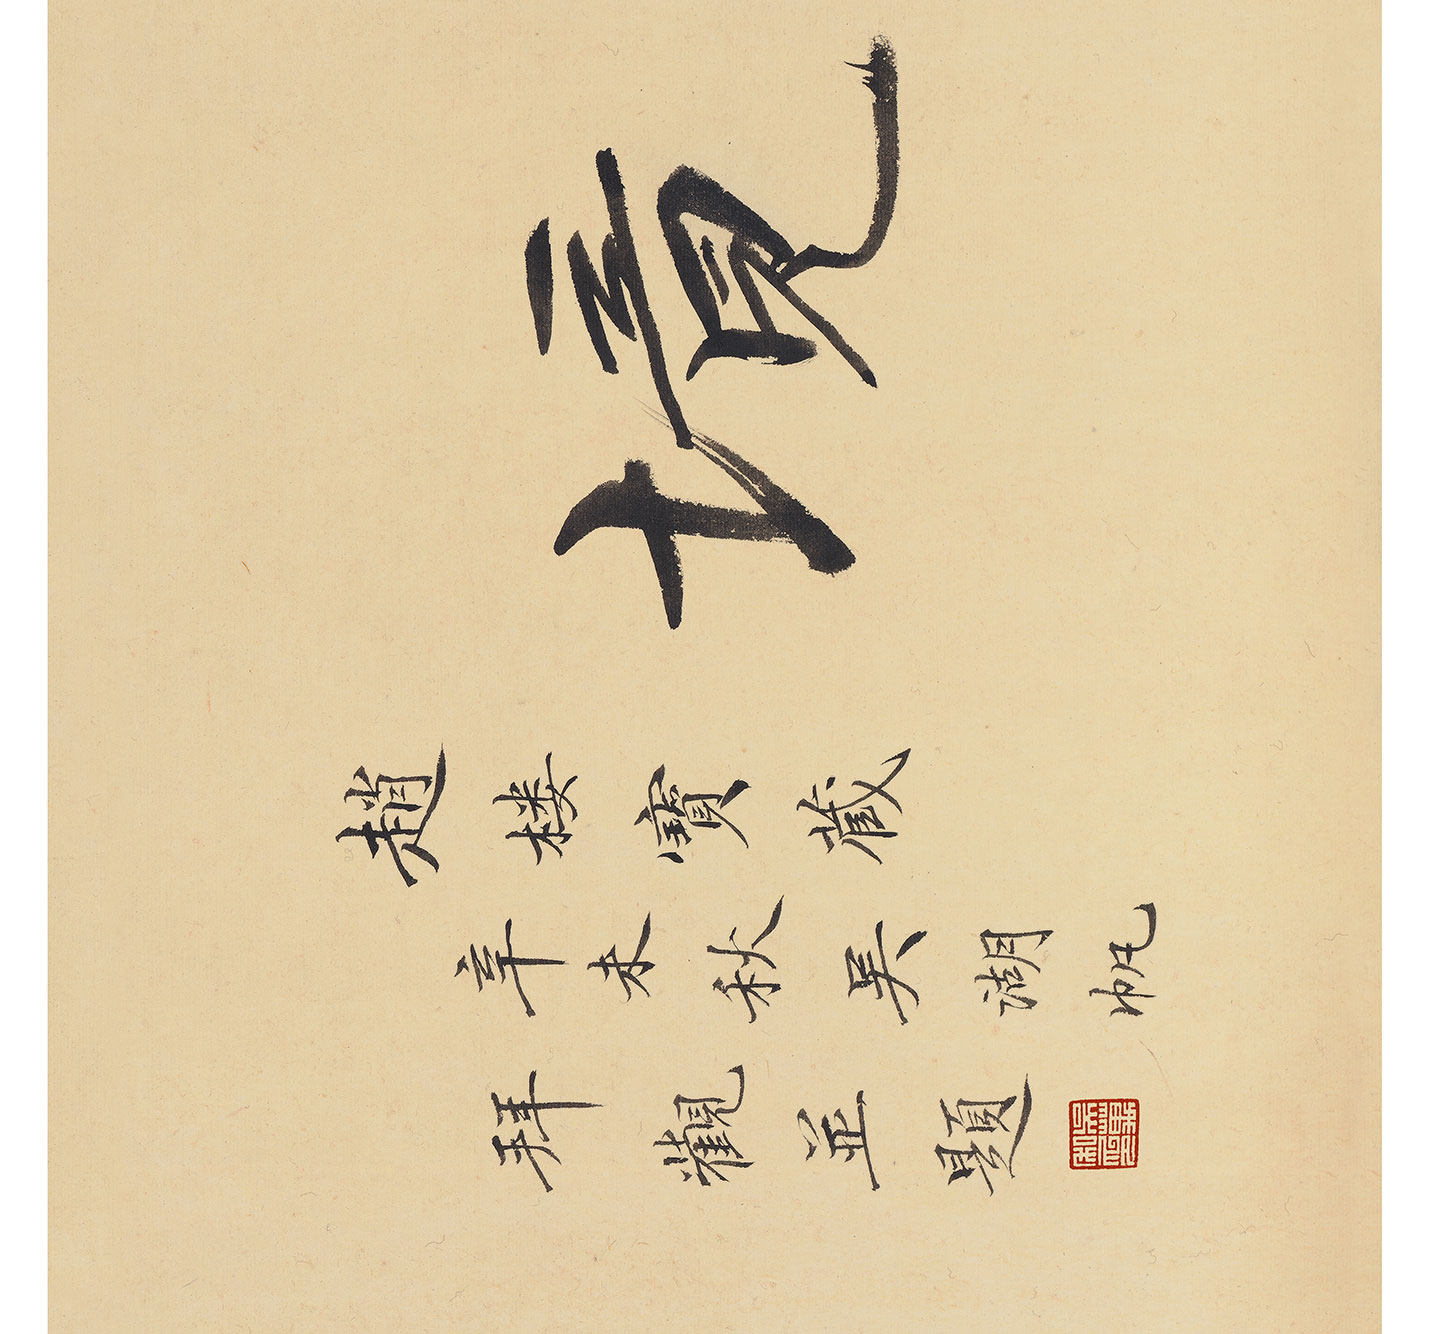 境
趙樓寶藏
辛未秋吳湖帆
拜觀並題